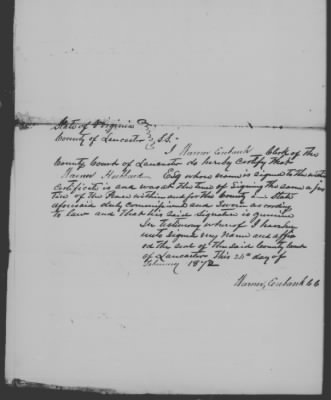 State of Virginia
County of Lancaster } SS:
I Warner Eubank Clerk of the
County Court of Lancaster do hereby certify that
Warner Hubbard Esq whose name is signed to the within
certificate is and was at the time of signing the same a jus
tice of the Peace within and for the County and State
aforesaid duly commissioned and sworn according
to law and that his said signature is genuine
In testimony whereof I hereun
unto signed my name and affix
ed the seal of the said County Court
of Lancaster this 24th day of
February 1872
Warner Eubank CC